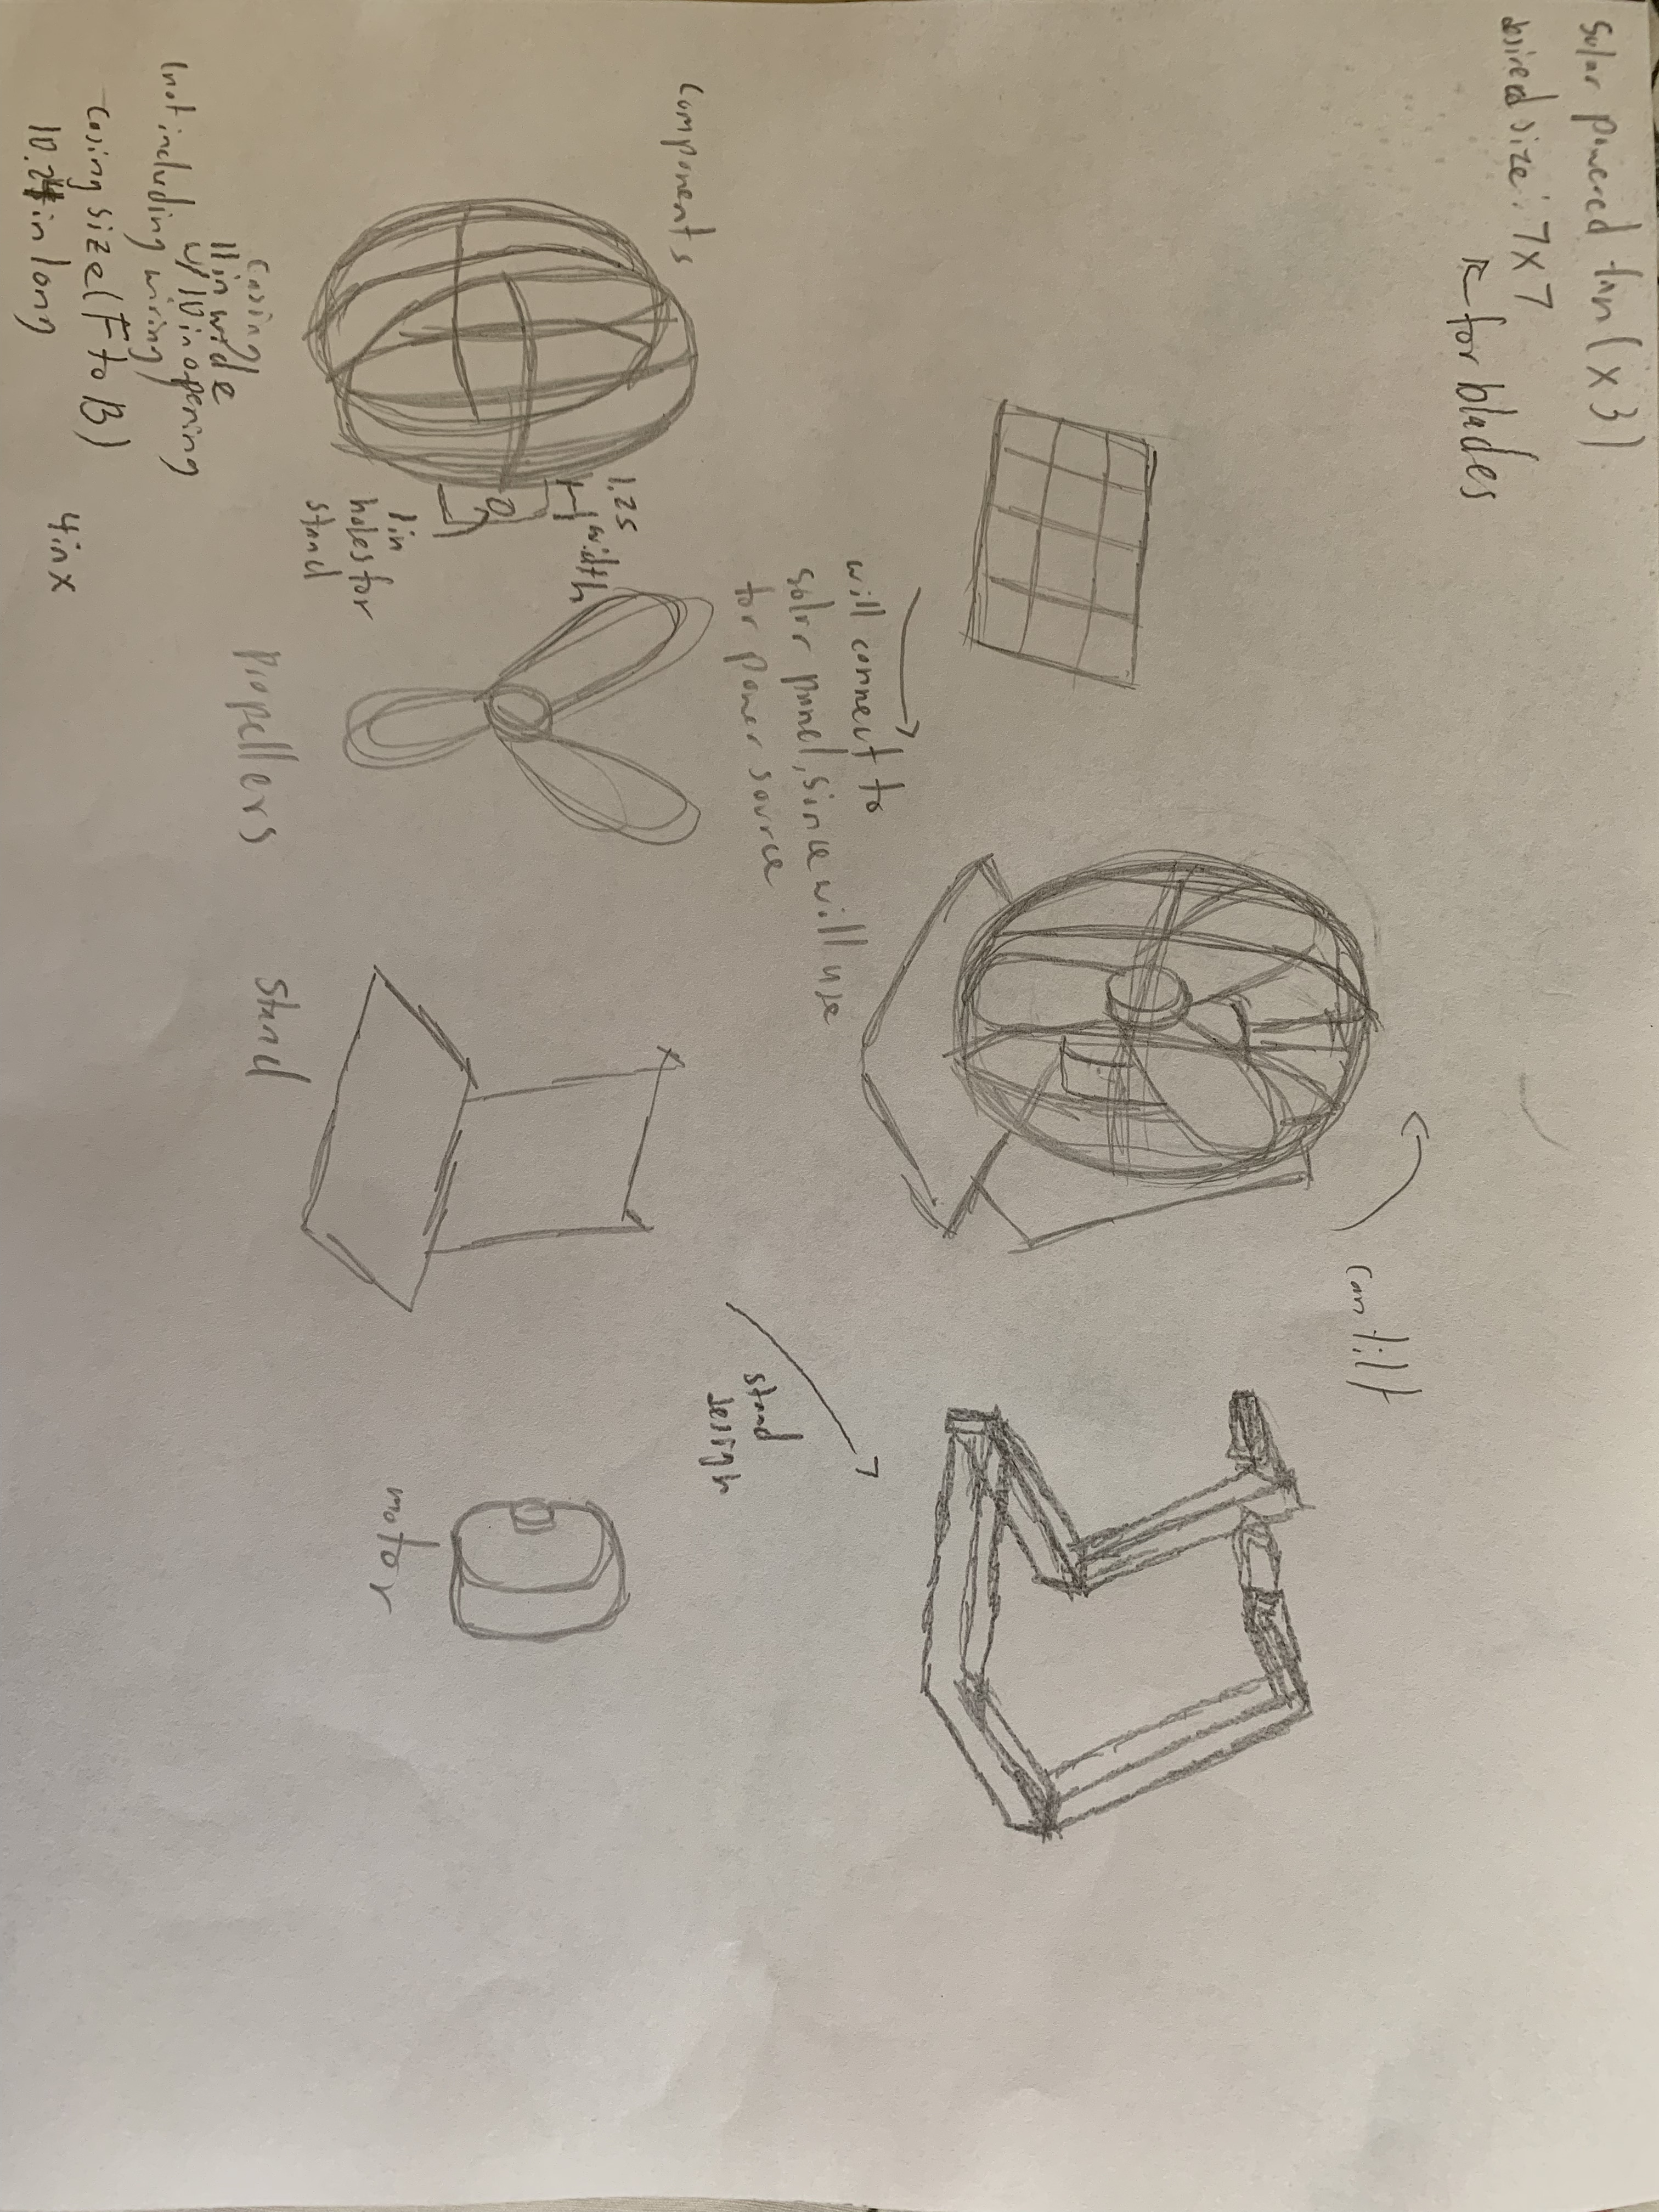 Solar powered fan (x 3)
desired size: 7x7
for blades
can tilt
will connect to
solar panel, since will use
for power source
stand
design
components
1.25
width
1in
holes for
stand
casing
11 in wide
w/ 10 in opening
(not including wiring)
casing size (F to B)
10.24 in long
4in x
propellers
stand
motor